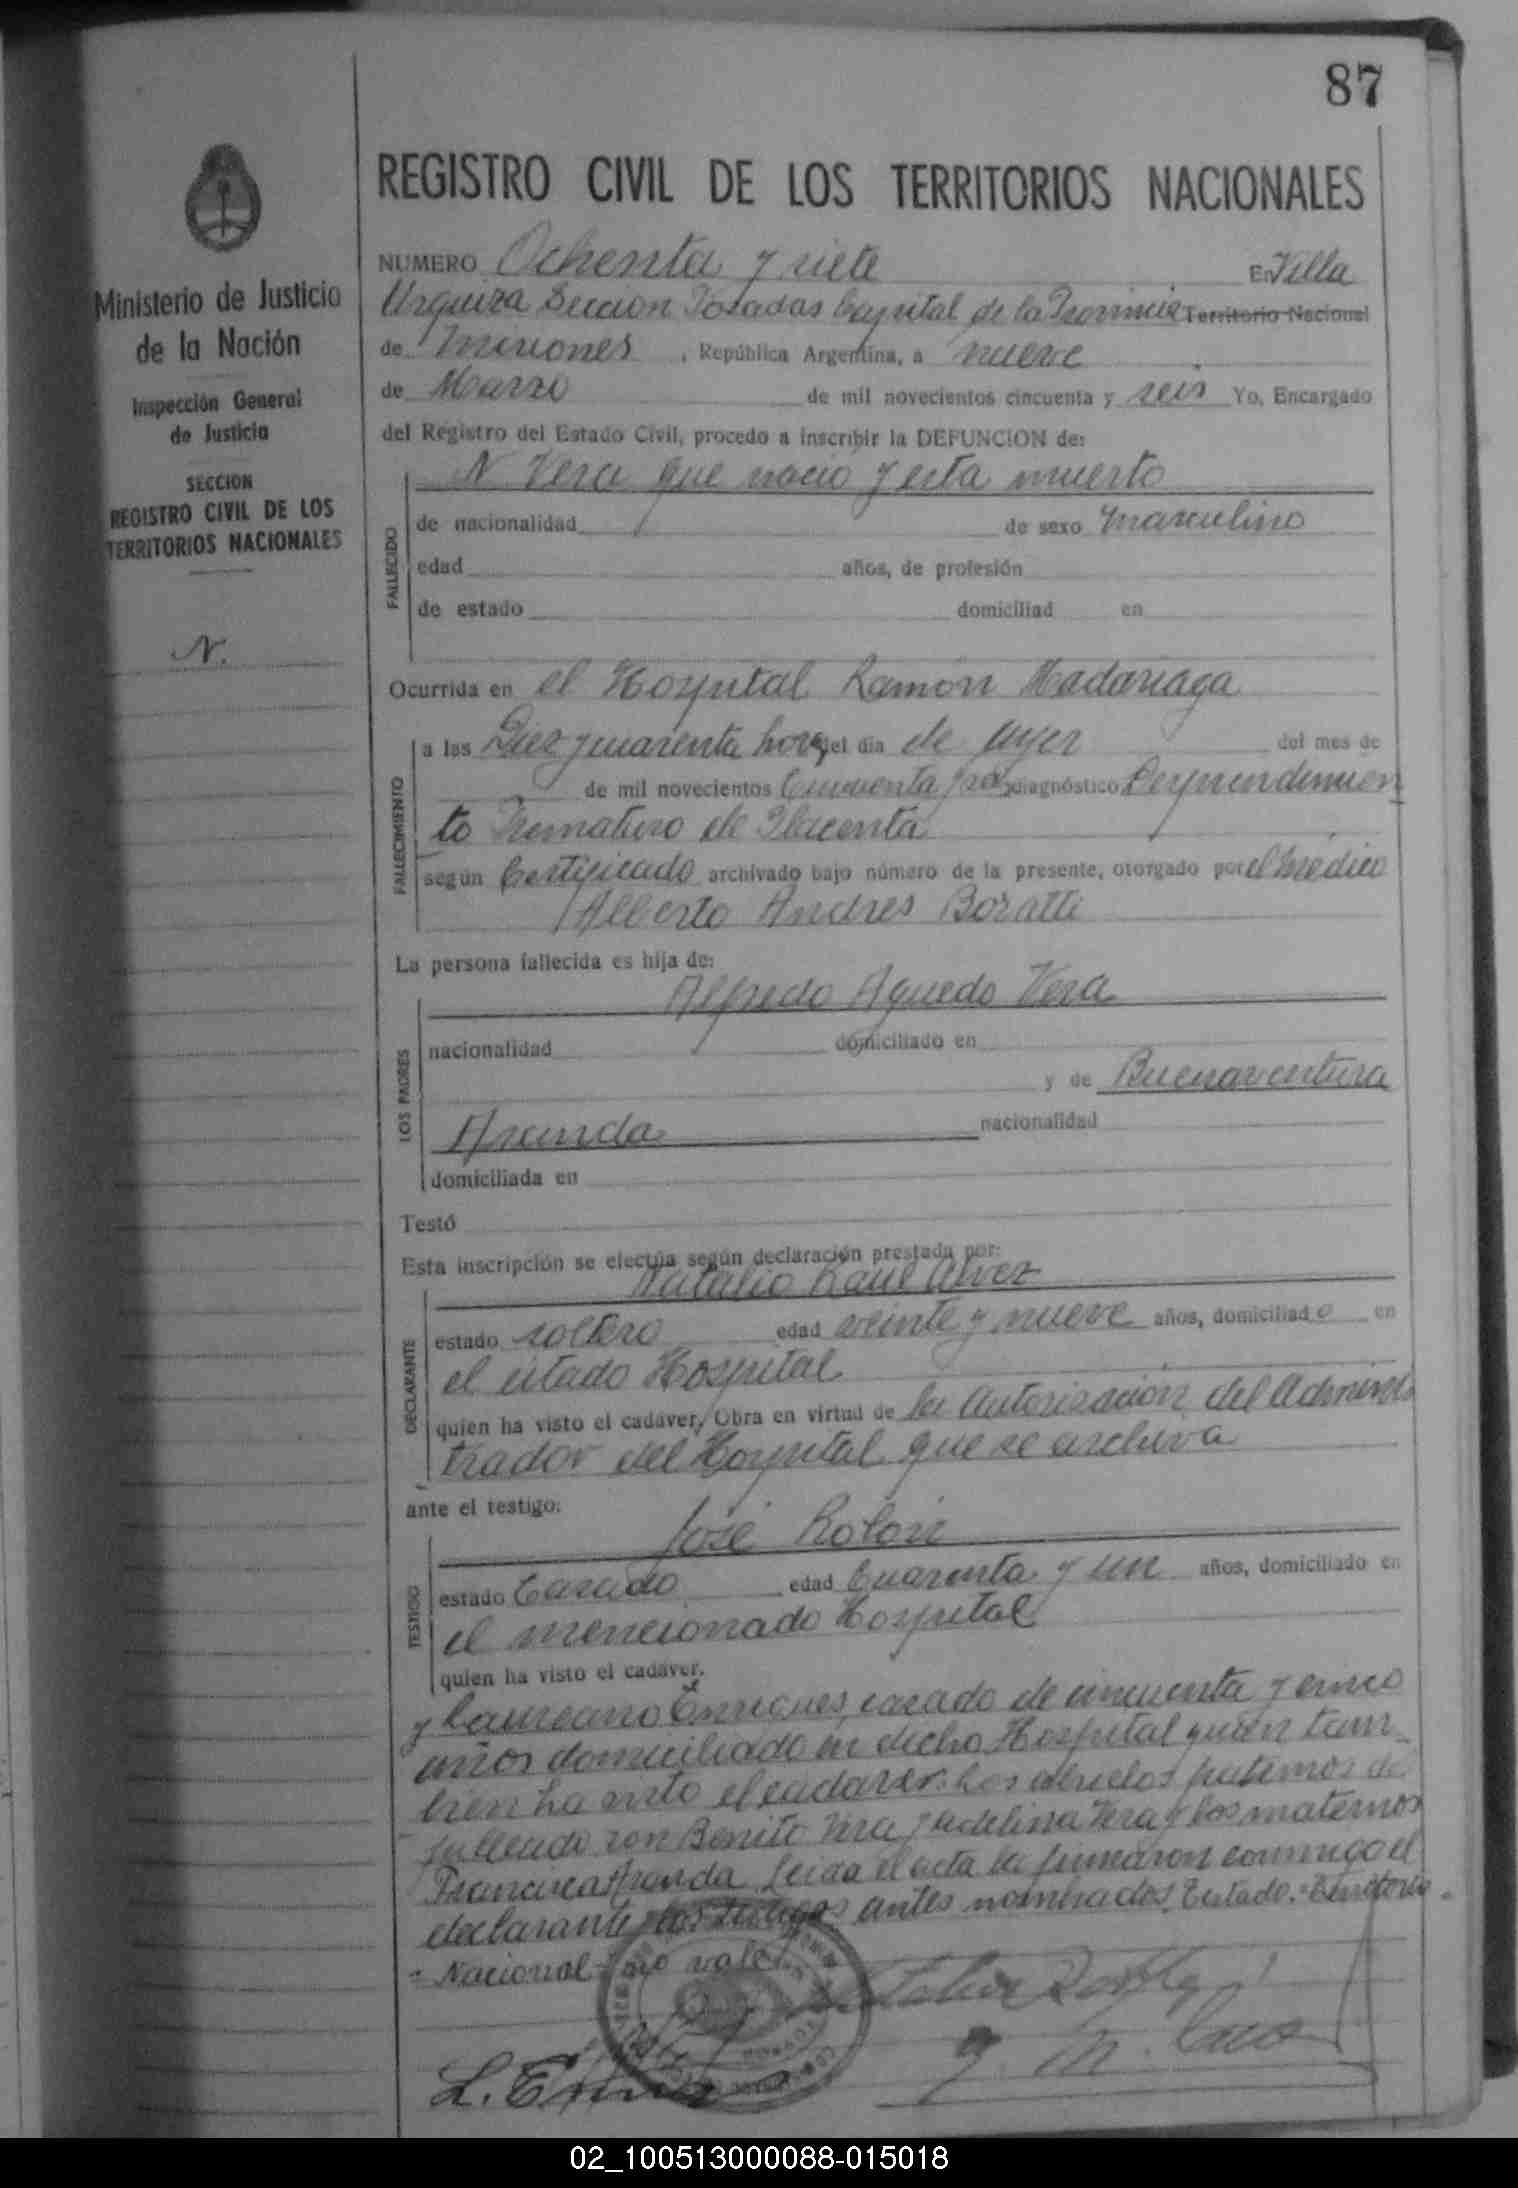 87
REGISTRO CIVIL DE LOS TERRITORIOS NACIONALES
Ministerio de Justicia
de la Nación
Inspección General
de Justicia
SECCION
REGISTRO CIVIL DE LOS
TERRITORIOS NACIONALES
N.
NUMERO Ochenta y siete En Villa
Urquiza Seccion Posadas Capital de la Provincia Territorio Nacional
de Misiones , República Argentina, a nueve
de Marzo de mil novecientos cincuenta y seis Yo, Encargado
del Registro del Estado Civil, procedo a inscribir la DEFUNCION de:
N Vera que nació y esta muerto
FALLECIDO
de nacionalidad de sexo masculino
edad años, de profesión
de estado domiciliad en
Ocurrida en el Hospital Ramón Madariaga
FALLECIMIENTO
a las Diez y cuarenta horas del día de ayer del mes de
de mil novecientos Cincuenta diagnóstico Desprendimien
to Prematuro de Placenta
según Certificado archivado bajo número de la presente, otorgado por el Médico
Alberto Andres Boratti
La persona fallecida es hija de:
LOS PADRES
Alfredo Aguedo Vera
nacionalidad domiciliado en
y de Buenaventura
Aranda nacionalidad
domiciliada en
Testó
Esta inscripción se efectúa según declaración prestada por:
Natalio Raul Alvez
DECLARANTE
estado soltero edad veinte y nueve años, domiciliado en
el citado Hospital
quien ha visto el cadáver, Obra en virtud de la Autorización del Adminis
trador del Hospital que se archiva
ante el testigo:
José Rolón
TESTIGO
estado Casado edad Cuarenta y un años, domiciliado en
el mencionado Hospital
quien ha visto el cadáver.
y Laureano Enriques, casado de cincuenta y cinco
años domiciliado en dicho Hospital quien tam
bien ha visto el cadaver. Los abuelos paternos del
fallecido son Benito Vera y Adelina Vera y los maternos
Francisca Aranda Leida el acta la firmaron conmigo el
declarante y los testigos antes nombrados. Testado: "Territorio
Nacional" no vale
02_100513000088-015018